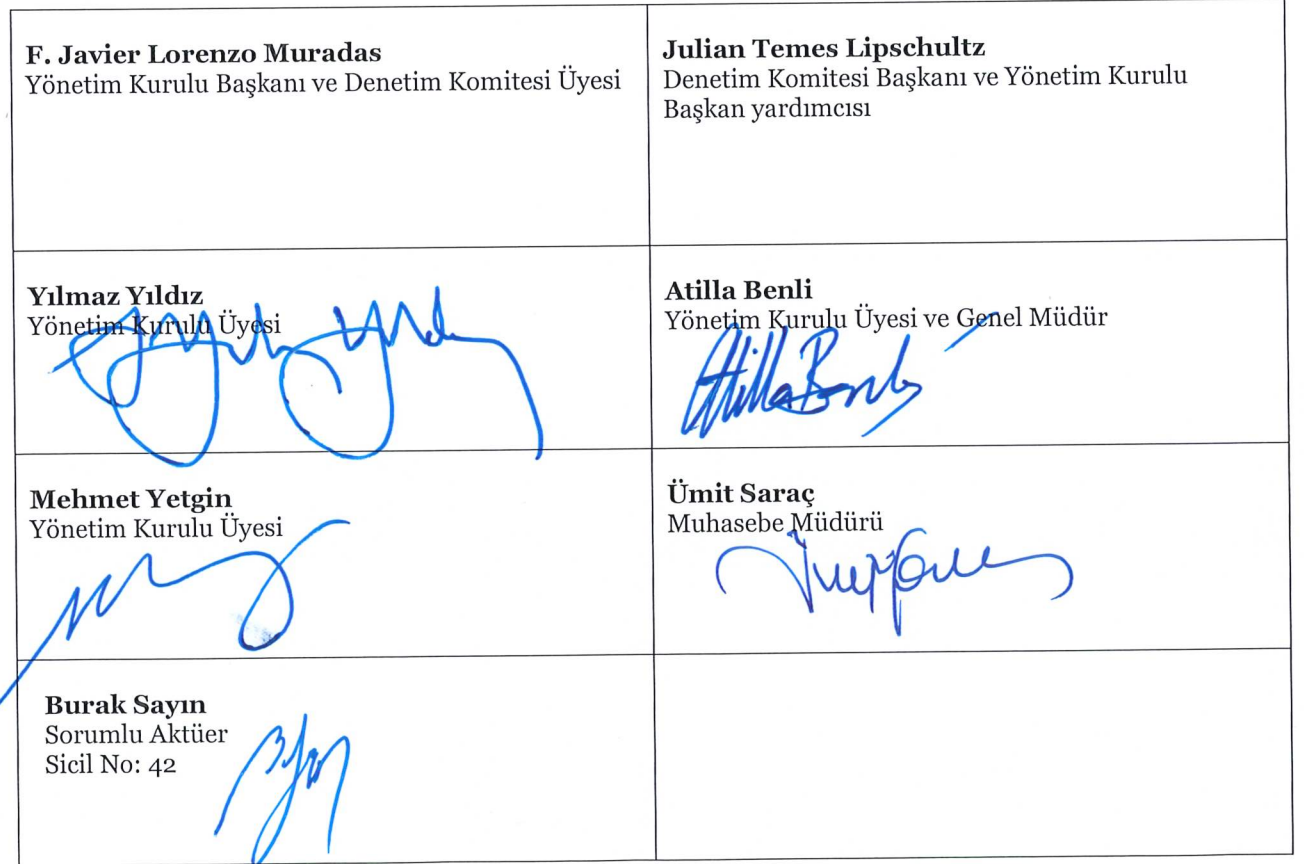 F. Javier Lorenzo Muradas
Yönetim Kurulu Başkanı ve Denetim Komitesi Üyesi
Julian Temes Lipschultz
Denetim Komitesi Başkanı ve Yönetim Kurulu
Başkan yardımcısı
Yılmaz Yıldız
Yönetim Kurulu Üyesi
Atilla Benli
Yönetim Kurulu Üyesi ve Genel Müdür
Atilla Benli
Mehmet Yetgin
Yönetim Kurulu Üyesi
Ümit Saraç
Muhasebe Müdürü
Burak Sayın
Sorumlu Aktüer
Sicil No: 42